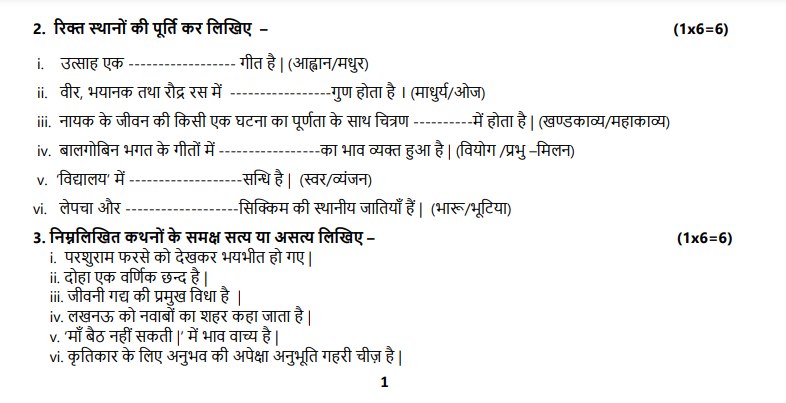 2. रिक्त स्थानों की पूर्ति कर लिखिए – (1x6=6)
i. उत्साह एक ------------------ गीत है | (आह्वान/मधुर)
ii. वीर, भयानक तथा रौद्र रस में -----------------गुण होता है । (माधुर्य/ओज)
iii. नायक के जीवन की किसी एक घटना का पूर्णता के साथ चित्रण ----------में होता है | (खण्डकाव्य/महाकाव्य)
iv. बालगोबिन भगत के गीतों में -----------------का भाव व्यक्त हुआ है | (वियोग /प्रभु –मिलन)
v. 'विद्यालय' में -------------------सन्धि है | (स्वर/व्यंजन)
vi. लेपचा और -------------------सिक्किम की स्थानीय जातियाँ हैं | (भारू/भूटिया)
3. निम्नलिखित कथनों के समक्ष सत्य या असत्य लिखिए – (1x6=6)
i. परशुराम फरसे को देखकर भयभीत हो गए |
ii. दोहा एक वर्णिक छन्द है |
iii. जीवनी गद्य की प्रमुख विधा है |
iv. लखनऊ को नवाबों का शहर कहा जाता है |
v. 'माँ बैठ नहीं सकती |' में भाव वाच्य है |
vi. कृतिकार के लिए अनुभव की अपेक्षा अनुभूति गहरी चीज़ है |
1